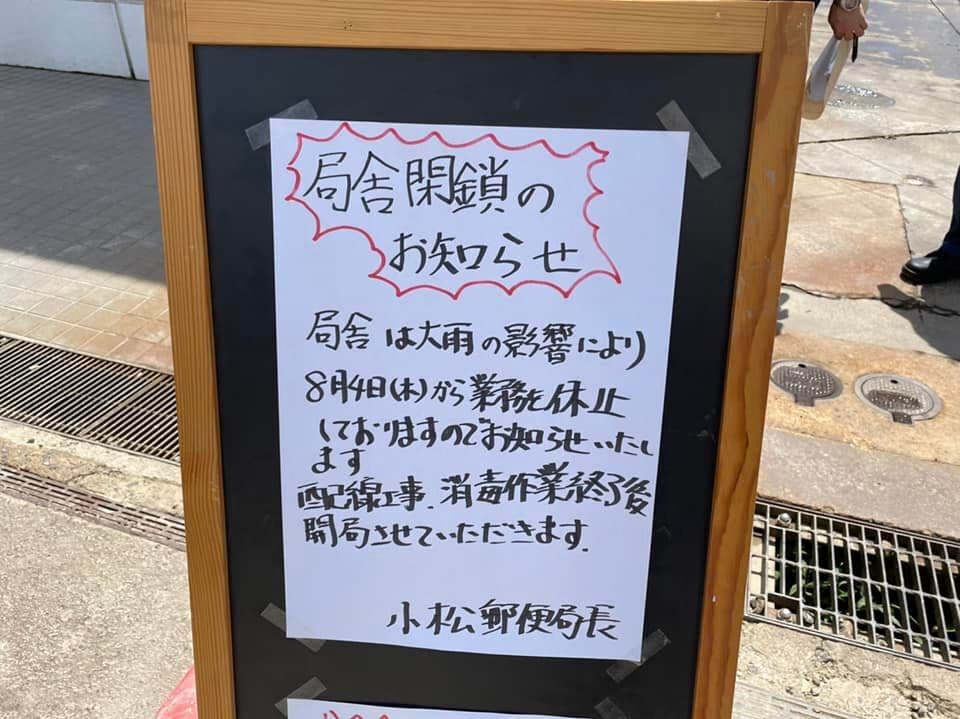 局舎閉鎖の
お知らせ
局舎は大雨の影響により
8月4日(木)から業務を休止
しておりますのでお知らせいたし
ます
配線工事、消毒作業終了後
開局させていただきます.
小松郵便局長